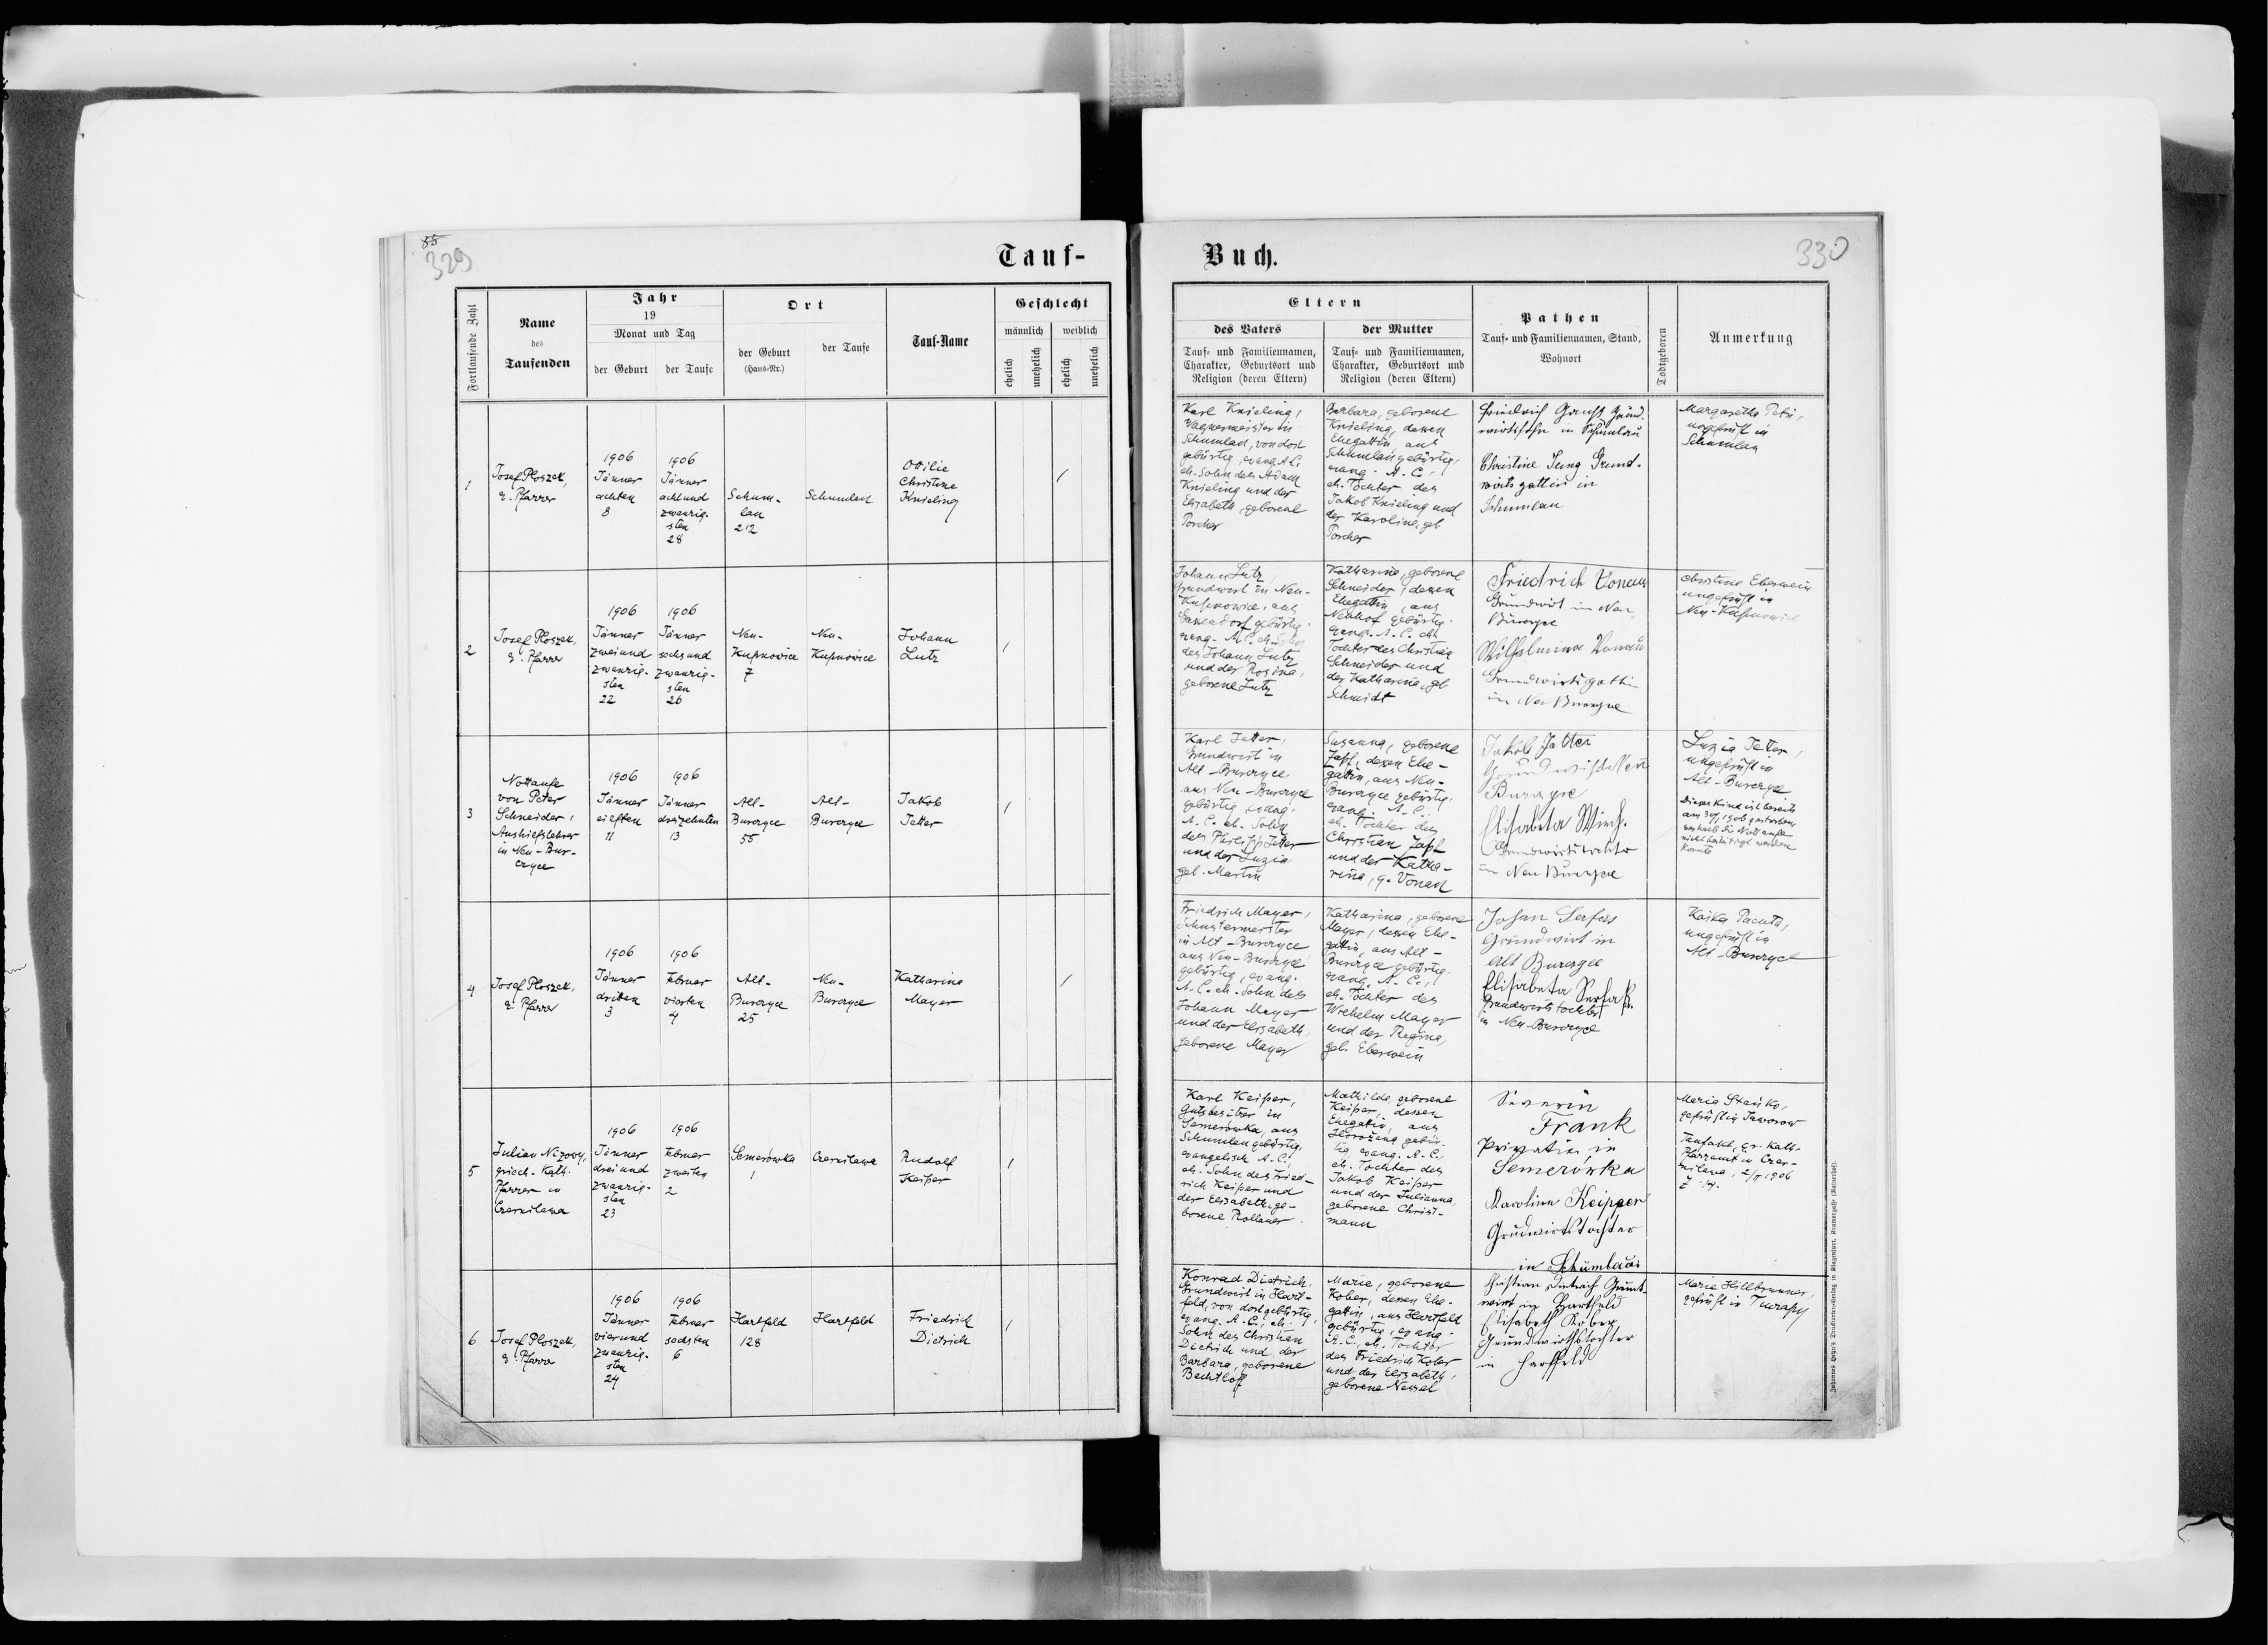 55
329
Tauf-
Fortlaufende Zahl
Name
des
Taufenden
Jahr
19
Monat und Tag
der Geburt
der Taufe
Ort
der Geburt
(Haus-Nr.)
der Taufe
Tauf-Name
Geschlecht
männlich
weiblich
ehelich
unehelich
ehelich
unehelich
1
Josef Ploszek,
e. Pfarrer
1906
Jänner
achten
8
1906
Jänner
acht und
zwanzig-
sten
28
Schum-
lau
212
Schumlau
Ottilie
Christine
Knieling
/
2
Josef Ploszek,
e. Pfarrer
1906
Jänner
zwei und
zwanzig-
sten
22
1906
Jänner
sechs und
zwanzig-
sten
26
Neu-
Kupnowice
7
Neu-
Kupnowice
Johann
Lutz
/
3
Nottaufe
von Peter
Schneider,
Aushilfslehrer
in Neu-Bur-
czyce
1906
Jänner
eilften
11
1906
Jänner
dreizehnten
13
Alt-
Burczyce
55
Alt-
Burczyce
Jakob
Jetter
/
4
Josef Ploszek,
e. Pfarrer
1906
Jänner
dritten
3
1906
Februar
vierten
4
Alt-
Burczyce
25
Neu-
Burczyce
Katharina
Mayer
/
5
Julian Nizowy,
griech.-Kath.
Pfarrer in
Czernilawa
1906
Jänner
drei und
zwanzig-
sten
23
1906
Februar
zweiten
2
Semerówka
1
Czernilawa
Rudolf
Keiper
/
6
Josef Ploszek,
e. Pfarrer
1906
Jänner
vier und
zwanzig-
sten
24
1906
Februar
sechsten
6
Hartfeld
128
Hartfeld
Friedrich
Dietrich
/
Buch.
330
Eltern
des Vaters
Tauf- und Familiennamen,
Charakter, Geburtsort und
Religion (deren Eltern)
der Mutter
Tauf- und Familiennamen,
Charakter, Geburtsort und
Religion (deren Eltern)
Pathen
Tauf- und Familiennamen, Stand,
Wohnort
Todtgeboren
Anmerkung
Karl Knieling,
Wagnermeister in
Schumlau, von dort
gebürtig, evang. A. C.
eh. Sohn des Adam
Knieling und der
Elisabeth, geborene
Porcher
Barbara, geborene
Knieling, dessen
Ehegattin aus
Schumlau gebürtig,
evang. A. C.,
eh. Tochter des
Jakob Knieling und
der Karoline, geb.
Porcher
Friedrich Grund-
wirtssohn in Schumlau
Christine Jung Grund-
wirtsgattin in
Schumlau
Margaretha Petri,
ungeprüft in
Schumlau
Johann Lutz
Grundwirt in Neu-
Kupnowice, aus
gebürtig.
evang. A. C. eh. Sohn
des Johann Lutz
und der Rosina,
geborene Lutz
Katharina, geborene
Schneider, dessen
Ehegattin, aus
Neuhof gebürtig.
evang. A. C. eh.
Tochter des Christian
Schneider und
der Katharina, geb.
Schmidt
Friedrich Vonau
Grundwirt in Neu
Burczyce
Wilhelmina Vonau
Grundwirtsgattin
in Neu Burczyce
Christine Eberwein
ungeprüft in
Neu-Kupnowice
Karl Jetter,
Grundwirt in
Alt-Burczyce
aus Neu-Burczyce
gebürtig, evang.
A. C. eh. Sohn
des Philipp Jetter
und der Luzia
geb. Martin
Susanna, geborene
Zapf, dessen Ehe-
gattin, aus Neu-
Burczyce gebürtig.
evang. A. C.,
eh. Tochter des
Christian Zapf
und der Katha-
rina, g. Vonau
Jakob Jetter
Grundwirt Neu
Burczyce
Elisabeta
Grundwirtstochter
in Neu Burczyce
Luzia Jetter,
ungeprüft in
Alt-Burczyce
Dieses Kind ist bereits
am 1906 gestorben,
weshalb die Nottaufe
nicht bestätigt werden
konnte
Friedrich Mayer,
Schustermeister
in Alt-Burczyce
aus Neu-Burczyce
gebürtig, evang.
A. C. eh. Sohn des
Johann Mayer
und der Elisabeth,
geborene Mayer
Katharina, geborene
Mayer, dessen Ehe-
gattin, aus Alt-
Burczyce gebürtig.
evang. A. C.,
eh. Tochter des
Wilhelm Mayer
und der Regina,
geb. Eberwein
Johan Serfas
Grundwirt in
Alt Burczyce
Elisabeta Serfaß.
Grundwirtstochter
in Neu-Burczyce
Kaska Pacuta,
ungeprüft in
Alt-Burczyce
Karl Keiper,
Gutsbesitzer in
Semerówka, aus
Schumlau gebürtig,
evangelisch A. C.,
eh. Sohn des Fried-
rich Keiper und
der Elisabeth, ge-
borene
Mathilde, geborene
Keiper, dessen
Ehegattin, aus
gebür-
tig, evang. A. C.,
eh. Tochter des
Jakob Keiper
und der Julianna,
geborene Christ-
mann
Severin
Frank
in
Semerówka
Karoline Keipper
Grundwirtstochter
in Schumlau
Maria Stańko,
geprüft in Jaworow
Taufakt, gr. Kath.
Pfarramt in Czer-
nilawa, 2/II 1906
Z 14.
Konrad Dietrich,
Grundwirt in Hart-
feld, von dort gebürtig,
evang. A. C., eh.
Sohn des Christian
Dietrich und der
Barbara, geborene
Bechtloff
Marie, geborene
Kober, dessen Ehe-
gattin, aus Hartfeld
gebürtig, evang.
A. C., eh. Tochter
des Friedrich Kober
und der Elisabeth,
geborene Nessel
Christian Dietrich Grund-
wirt in Hartfeld
Elisabeth Kober
Grundwirthstochter
in Hartfeld
Marie Hillbrunner,
geprüft in
Johannes Heyn's Druckerei-Verlag in Klagenfurt, Kramergasse